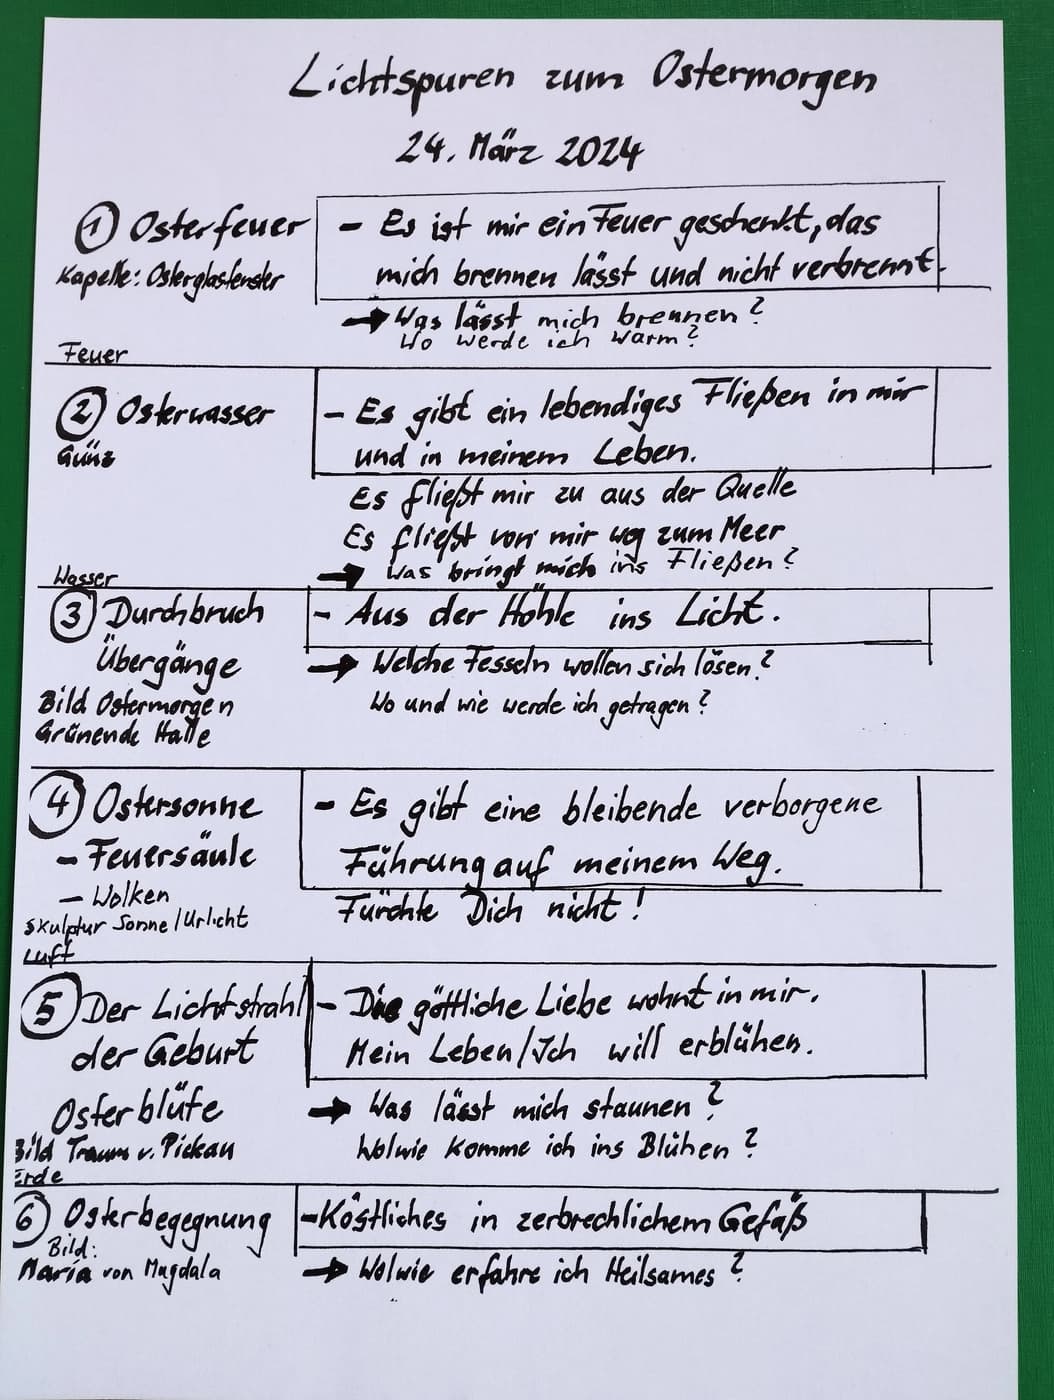 Lichtspuren zum Ostermorgen
24. März 2024
① Osterfeuer
Kapelle: Osterglasfenster
Feuer
- Es ist mir ein Feuer geschenkt, das
mich brennen lässt und nicht verbrennt.
→ Was lässt mich brennen?
Wo werde ich warm?
② Osterwasser
Günz
Wasser
- Es gibt ein lebendiges Fließen in mir
und in meinem Leben.
Es fließt mir zu aus der Quelle
Es fließt von mir weg zum Meer
→ Was bringt mich ins Fließen?
③ Durchbruch
Übergänge
Bild Ostermorgen
Grünende Halle
- Aus der Höhle ins Licht.
→ Welche Fesseln wollen sich lösen?
Wo und wie werde ich getragen?
④ Ostersonne
- Feuersäule
- Wolken
Skulptur Sonne/Urlicht
Luft
- Es gibt eine bleibende verborgene
Führung auf meinem Weg.
Fürchte Dich nicht!
⑤ Der Lichtstrahl
der Geburt
Osterblüte
Bild Traum v. Pickau
Erde
- Die göttliche Liebe wohnt in mir.
Mein Leben/Ich will erblühen.
→ Was lässt mich staunen?
Wo/wie komme ich ins Blühen?
⑥ Osterbegegnung
Bild:
Maria von Magdala
- Köstliches in zerbrechlichem Gefäß
→ Wo/wie erfahre ich Heilsames?